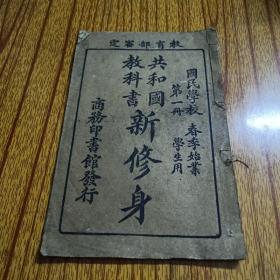 教育部審定
國民學校 春季始業
第一冊 學生用
共和國
教科書
新修身
商務印書館發行